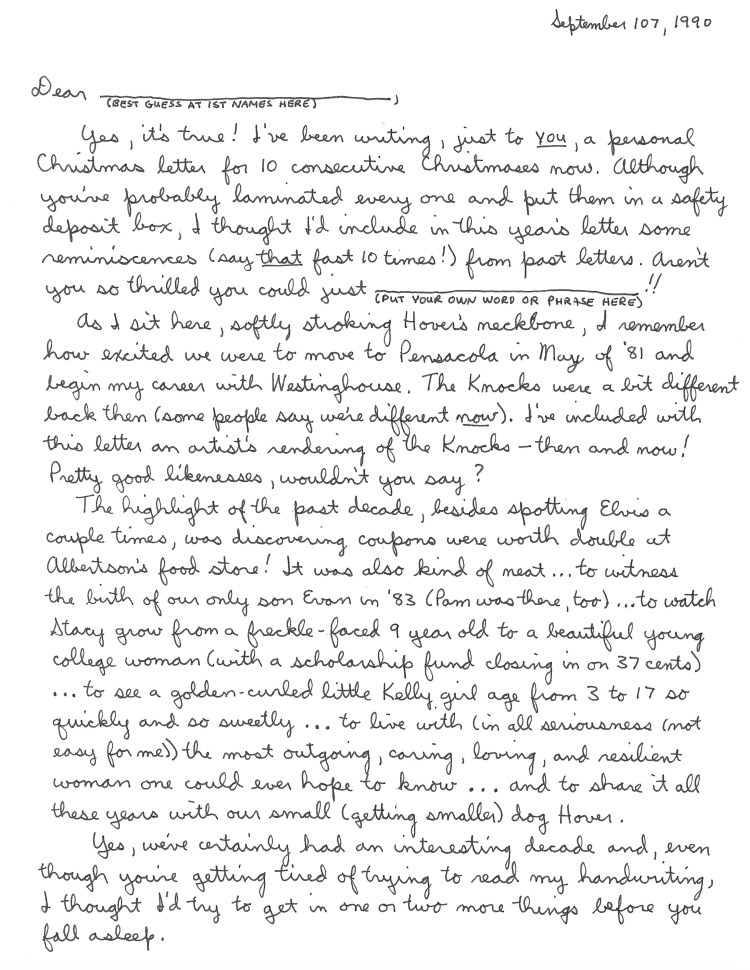 September 107, 1990
Dear ____________________,
(BEST GUESS AT 1ST NAMES HERE)
Yes, it's true! I've been writing, just to you, a personal
Christmas letter for 10 consecutive Christmases now. Although
you've probably laminated every one and put them in a safety
deposit box, I thought I'd include in this year's letter some
reminiscences (say that fast 10 times!) from past letters. Aren't
you so thrilled you could just ____________________!!
(PUT YOUR OWN WORD OR PHRASE HERE)
As I sit here, softly stroking Hover's neckbone, I remember
how excited we were to move to Pensacola in May of '81 and
begin my career with Westinghouse. The Knocks were a bit different
back then (some people say we're different now). I've included with
this letter an artist's rendering of the Knocks – then and now!
Pretty good likenesses, wouldn't you say?
The highlight of the past decade, besides spotting Elvis a
couple times, was discovering coupons were worth double at
Albertson's food store! It was also kind of neat ... to witness
the birth of our only son Evan in '83 (Pam was there, too) ... to watch
Stacy grow from a freckle-faced 9 year old to a beautiful young
college woman (with a scholarship fund closing in on 37 cents)
... to see a golden-curled little Kelly girl age from 3 to 17 so
quickly and so sweetly ... to live with (in all seriousness (not
easy for me)) the most outgoing, caring, loving, and resilient
woman one could ever hope to know ... and to share it all
these years with our small (getting smaller) dog Hover.
Yes, we've certainly had an interesting decade and, even
though you're getting tired of trying to read my handwriting,
I thought I'd try to get in one or two more things before you
fall asleep.